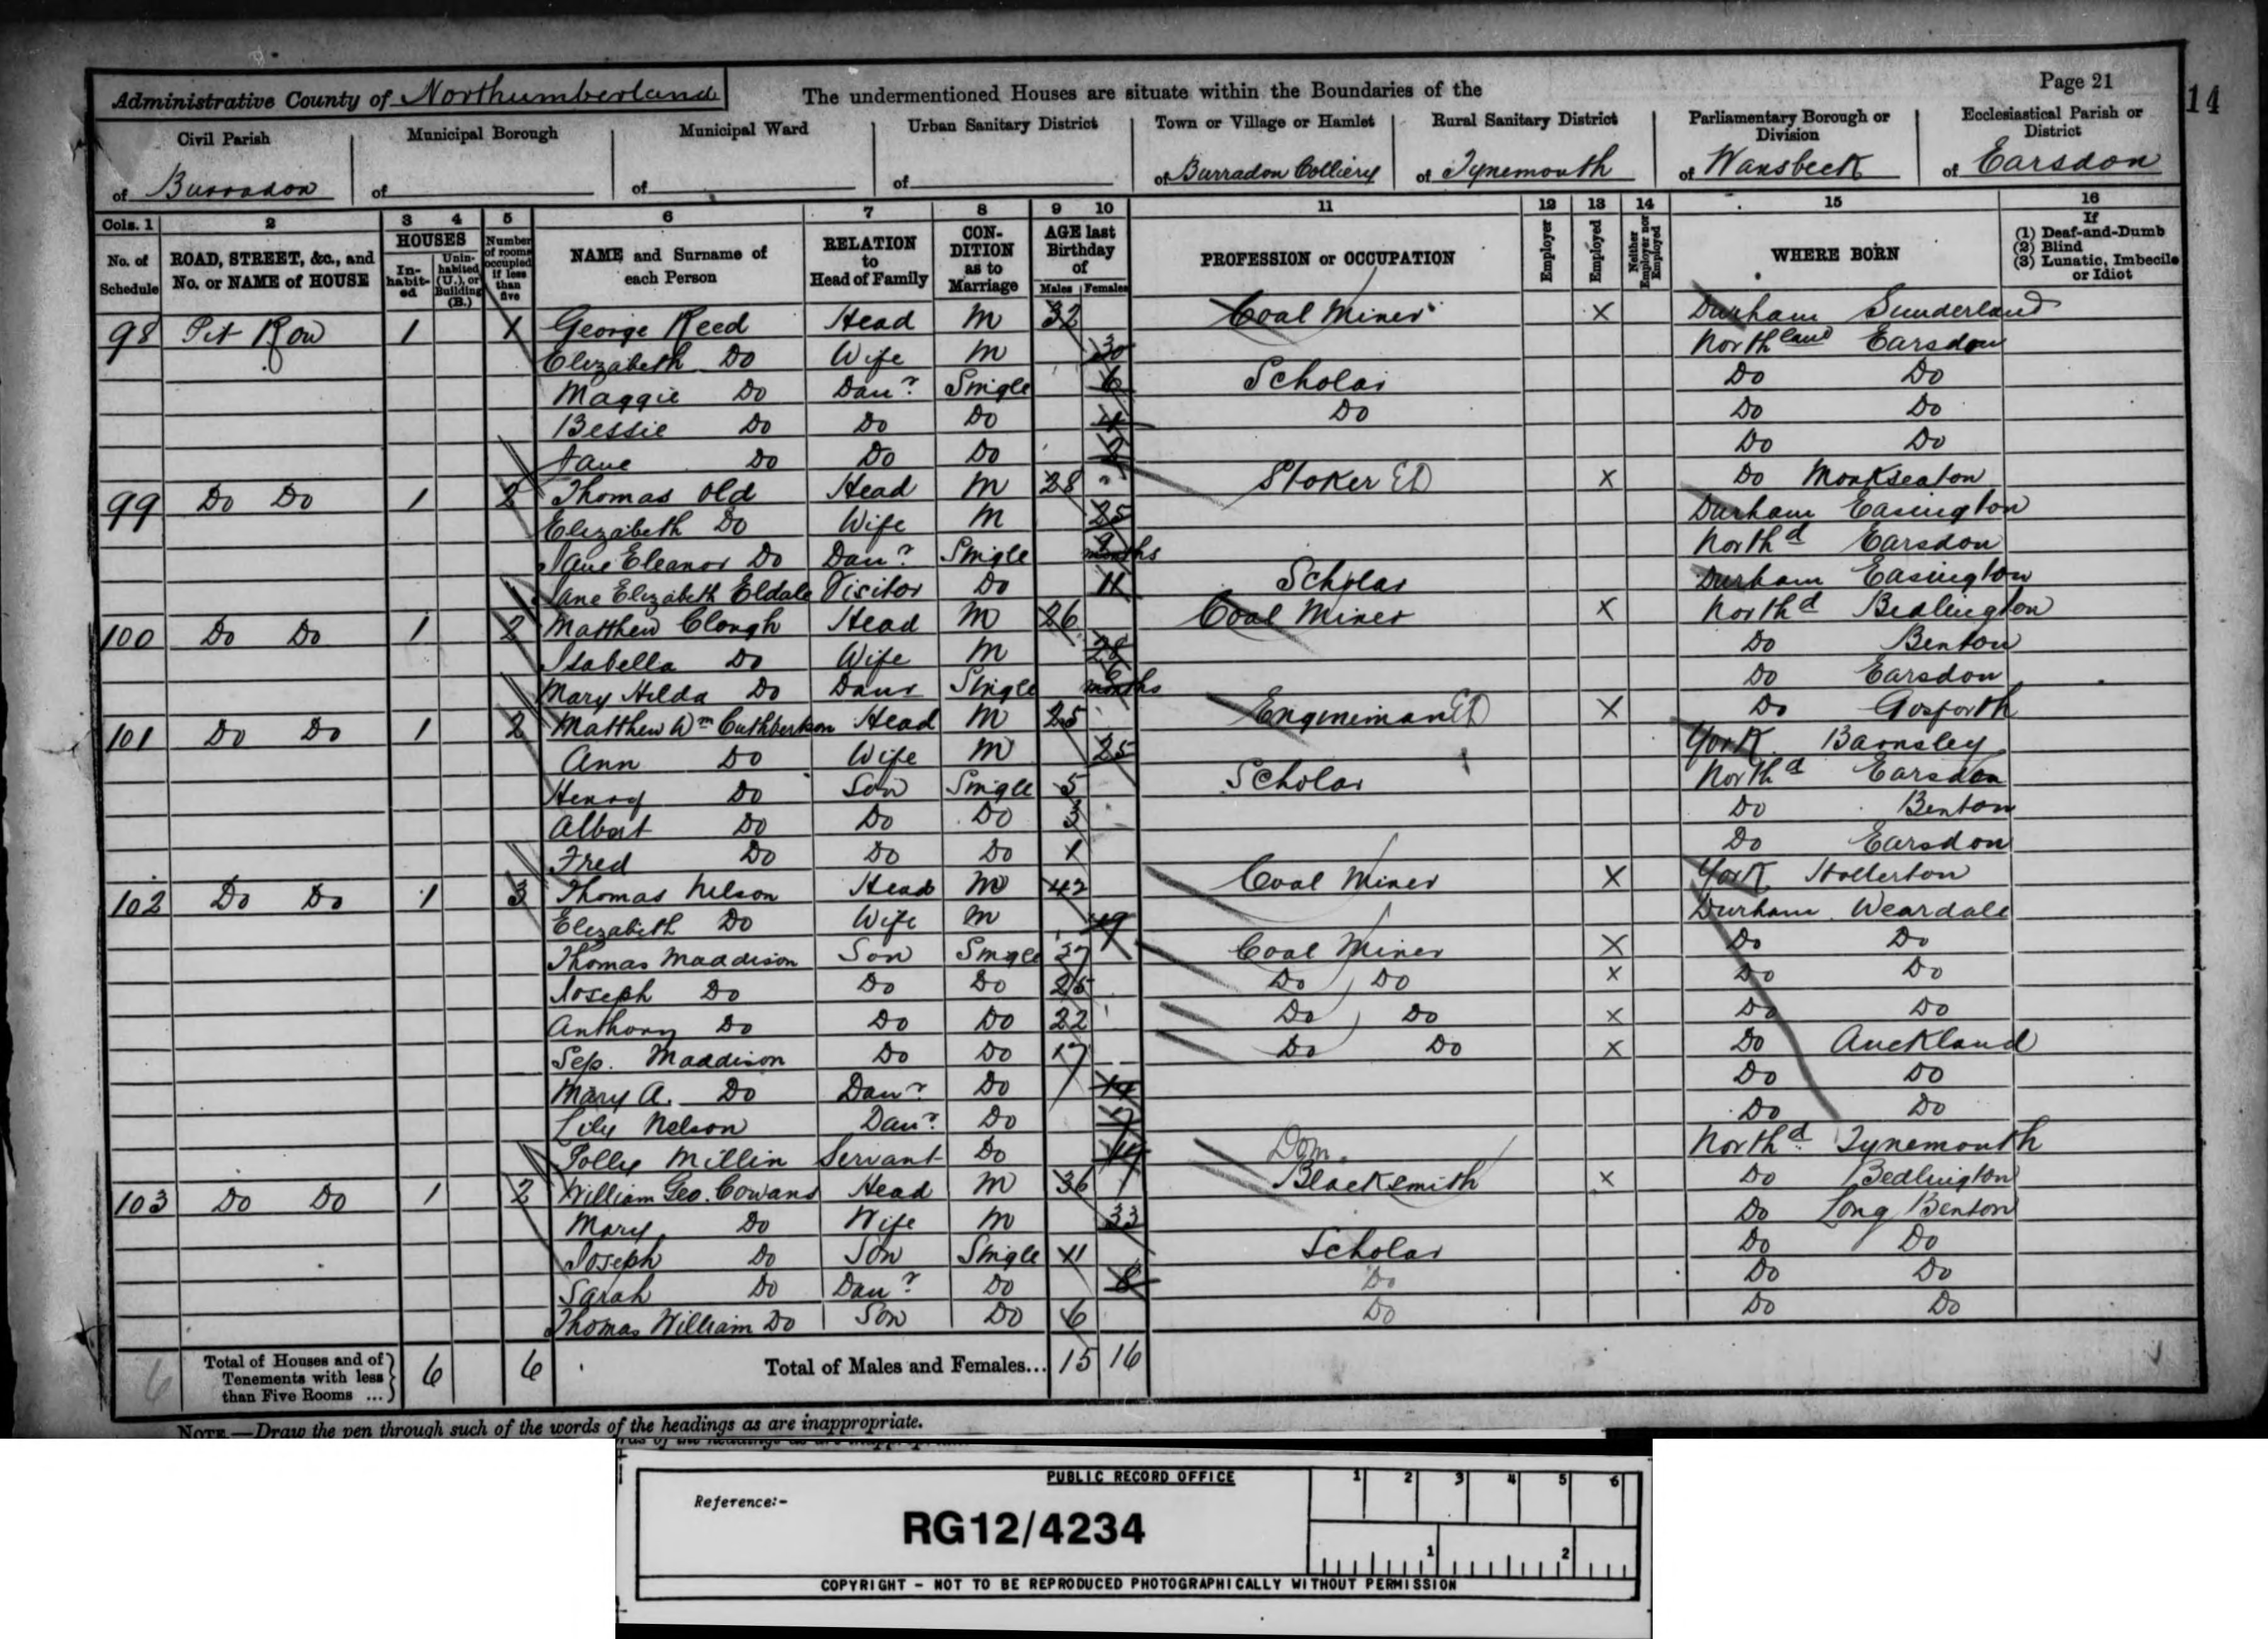 Page 21
14
Administrative County of Northumberland
The undermentioned Houses are situate within the Boundaries of the
Civil Parish of Burradon
Municipal Borough of
Municipal Ward of
Urban Sanitary District of
Town or Village or Hamlet of Burradon Colliery
Rural Sanitary District of Tynemouth
Parliamentary Borough or Division of Wansbeck
Ecclesiastical Parish or District of Earsdon
Cols. 1 2 3 4 5 6 7 8 9 10 11 12 13 14 15 16
No. of Schedule
ROAD, STREET, &c., and No. or NAME of HOUSE
HOUSES
In-habit-ed
Unin-habited (U.), or Building (B.)
Number of rooms occupied if less than five
NAME and Surname of each Person
RELATION to Head of Family
CON-DITION as to Marriage
AGE last Birthday of
Males Females
PROFESSION or OCCUPATION
Employer
Employed
Neither Employer nor Employed
WHERE BORN
If (1) Deaf-and-Dumb (2) Blind (3) Lunatic, Imbecile or Idiot
98 Pit Row 1 1 George Reed Head M 32 Coal Miner X Durham Sunderland
Elizabeth Do Wife M 30 Northland Earsdon
Maggie Do Daur Single 6 Scholar Do Do
Bessie Do Do Do 4 Do Do Do
Jane Do Do Do 2 Do Do
99 Do Do 1 2 Thomas Old Head M 28 Stoker ED X Do Monkseaton
Elizabeth Do Wife M 25 Durham Easington
Jane Eleanor Do Daur Single 9 months Northd Earsdon
Jane Elizabeth Eldale Visitor Do 11 Scholar Durham Easington
100 Do Do 1 2 Matthew Clough Head M 26 Coal Miner X Northd Bedlington
Isabella Do Wife M 28 Do Benton
Mary Hilda Do Daur Single 6 months Do Earsdon
101 Do Do 1 2 Matthew Wm Cuthbertson Head M 25 Engineman ED X Do Gosforth
Ann Do Wife M 25 York Barnsley
Henry Do Son Single 5 Scholar Northd Earsdon
Albert Do Do Do 3 Do Benton
Fred Do Do Do 1 Do Earsdon
102 Do Do 1 3 Thomas Nelson Head M 42 Coal Miner X York
Elizabeth Do Wife M 49 Durham Weardale
Thomas Maddison Son Single 27 Coal Miner X Do Do
Joseph Do Do Do 25 Do Do X Do Do
Anthony Do Do Do 22 Do Do X Do Do
Sep. Maddison Do Do 17 Do Do X Do Auckland
Mary A. Do Daur Do 14 Do Do
Lily Nelson Daur Do 7 Do Do
Polly Millin Servant Do 14 Dom. Northd Tynemouth
103 Do Do 1 2 William Geo. Cowans Head M 36 Blacksmith X Do Bedlington
Mary Do Wife M 33 Do Long Benton
Joseph Do Son Single 11 Scholar Do Do
Sarah Do Daur Do 8 Do Do Do
Thomas William Do Son Do 6 Do Do Do
6 Total of Houses and of Tenements with less than Five Rooms ... 6 6 Total of Males and Females... 15 16
NOTE.—Draw the pen through such of the words of the headings as are inappropriate.
PUBLIC RECORD OFFICE
1 2 3 4 5 6
Reference:-
RG12/4234
1 2
COPYRIGHT - NOT TO BE REPRODUCED PHOTOGRAPHICALLY WITHOUT PERMISSION